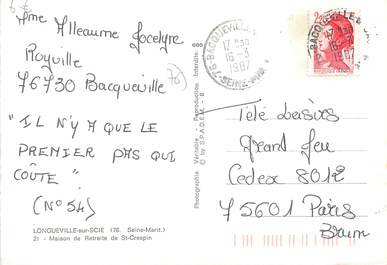 Mme Alleaume Jocelyne
Royville
76730 Bacqueville
76
"IL N'Y A QUE LE
PREMIER PAS QUI
COÛTE"
(N° 54)
LONGUEVILLE-sur-SCIE (76. Seine-Marit.)
21 - Maison de Retraite de St-Crespin
Photographie Véritable - Reproduction Interdite
© by S.P.A.D.E.M. - 8
76-BACQUEVILLE
17 H30
16-3
1987
SEINE-MME
Télé Loisirs
Grand Jeu
Cedex 8012
75601 Paris
Brun